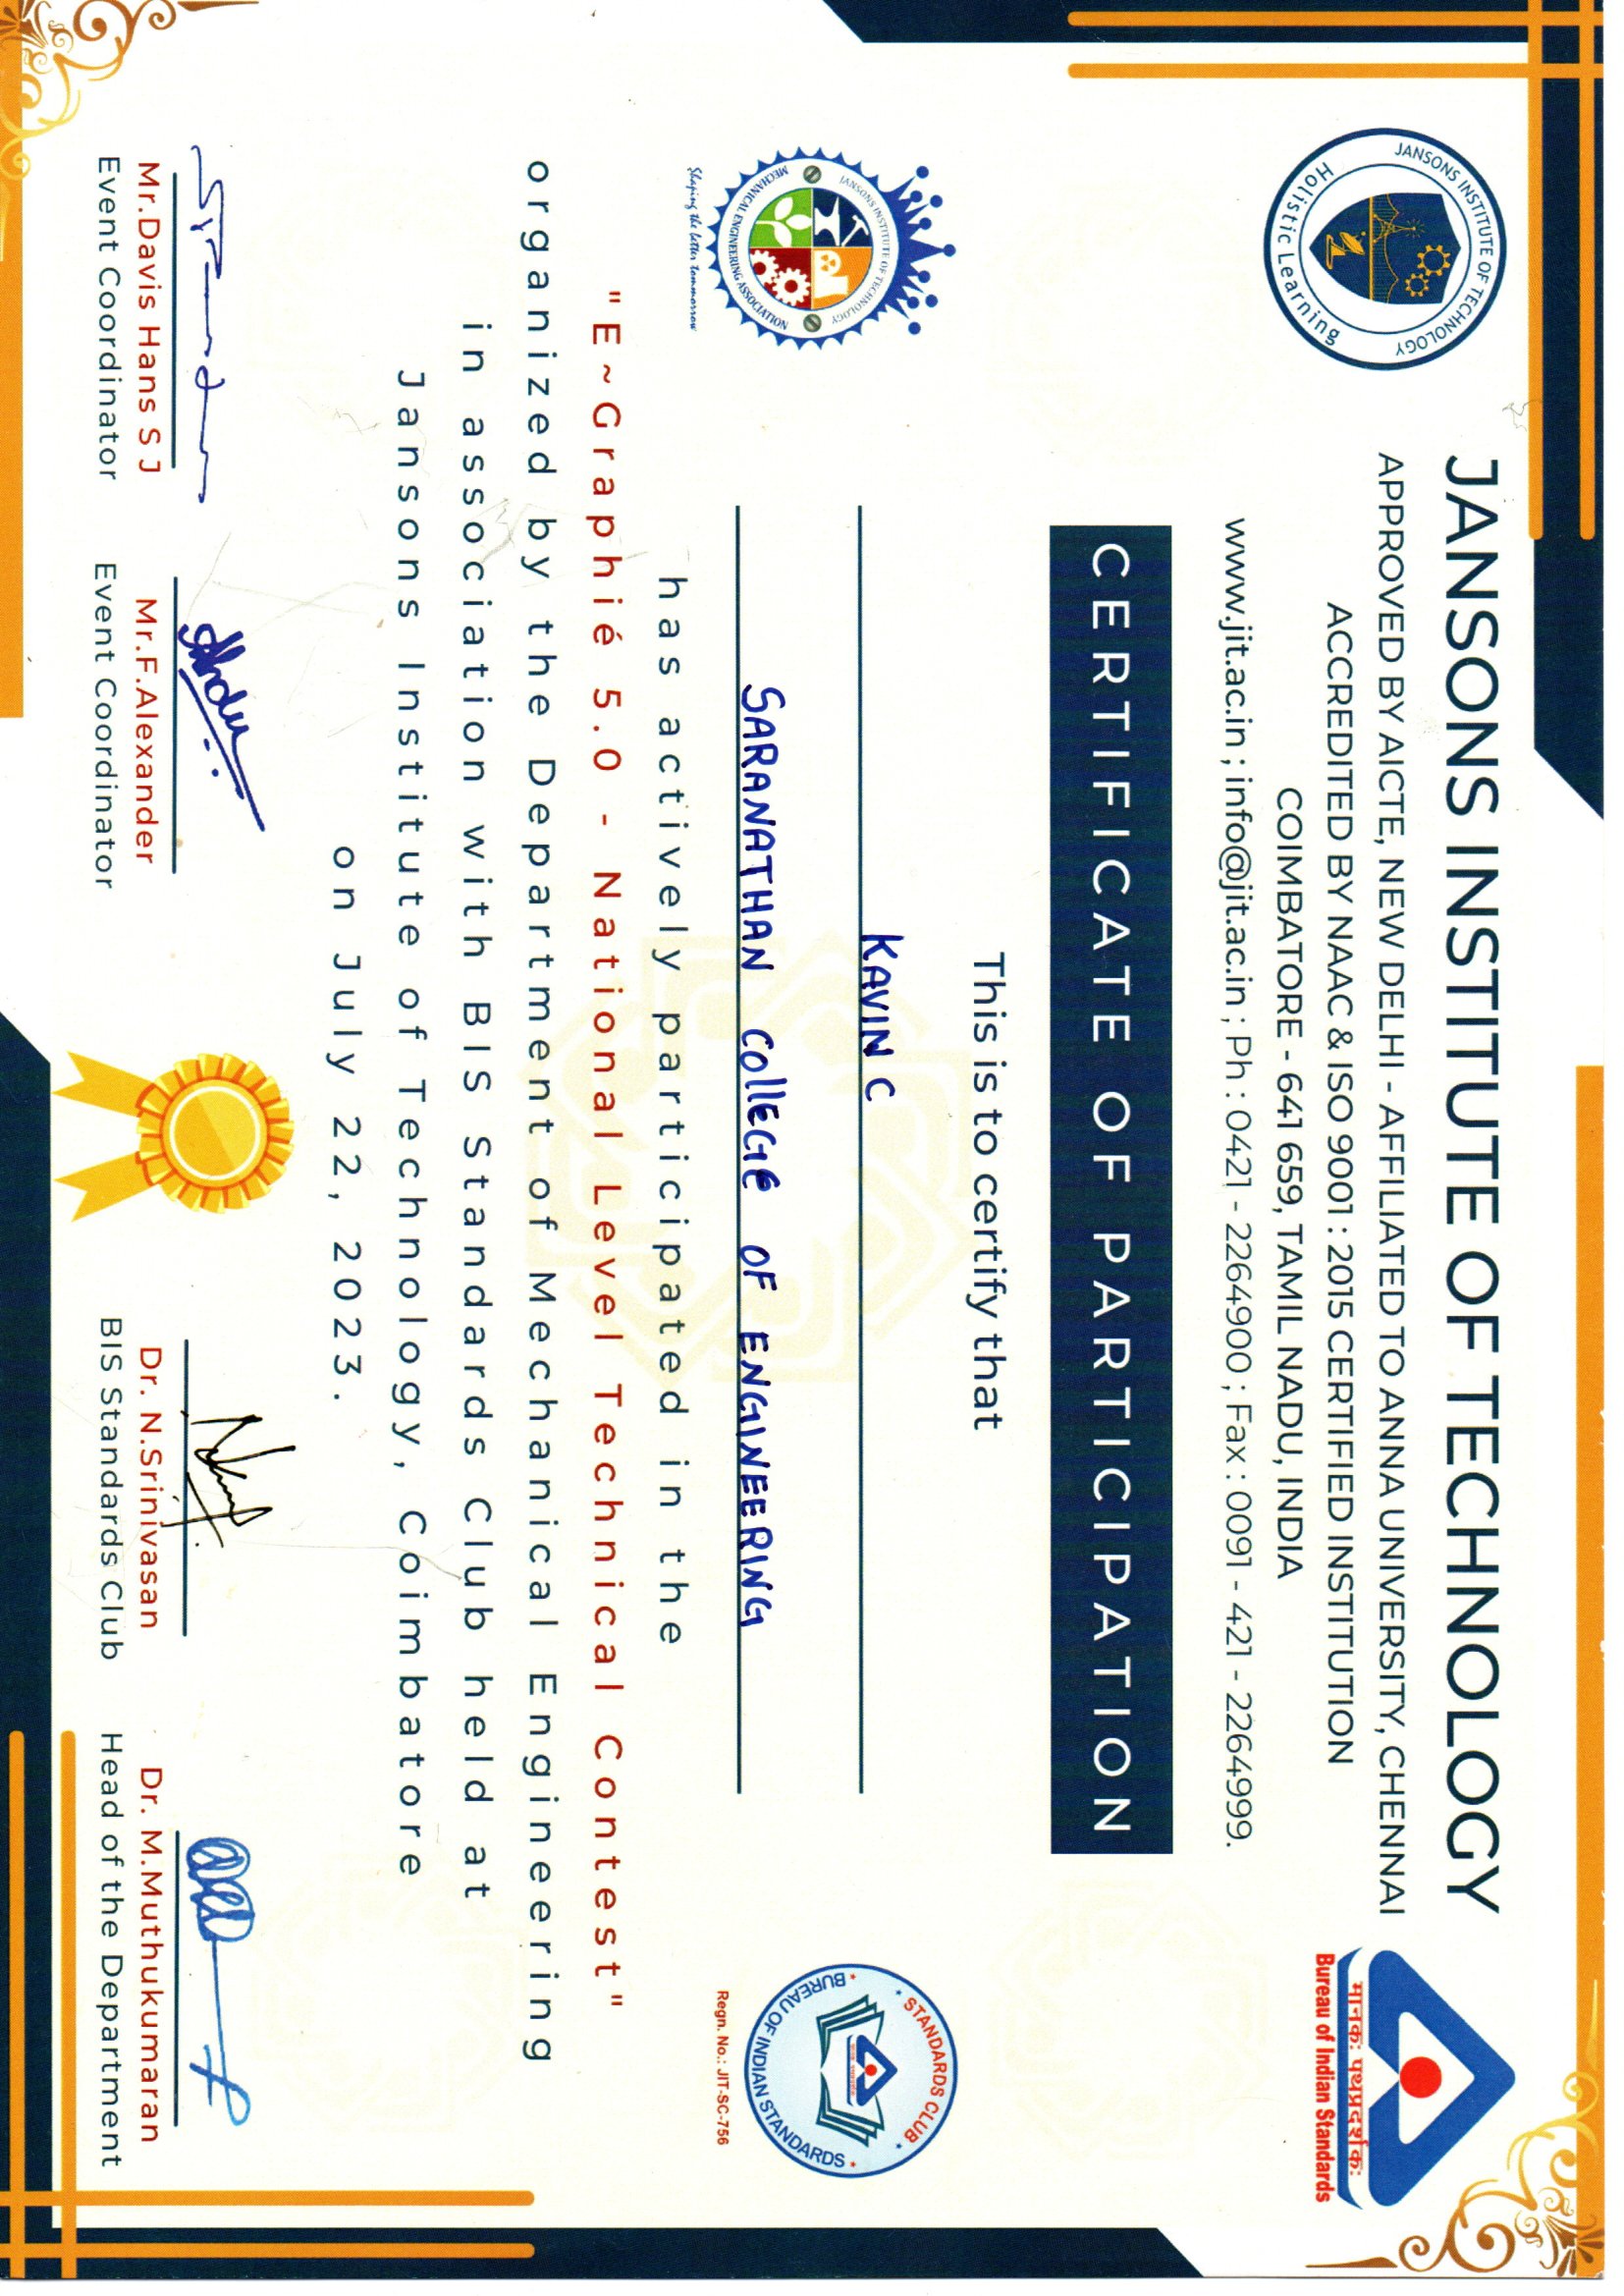 JANSONS INSTITUTE OF TECHNOLOGY
Holistic Learning
JANSONS INSTITUTE OF TECHNOLOGY
APPROVED BY AICTE, NEW DELHI - AFFILIATED TO ANNA UNIVERSITY, CHENNAI
ACCREDITED BY NAAC & ISO 9001 : 2015 CERTIFIED INSTITUTION
COIMBATORE - 641 659, TAMIL NADU, INDIA
www.jit.ac.in ; info@jit.ac.in ; Ph : 0421 - 2264900 ; Fax : 0091 - 421 - 2264999.
मानक: पथप्रदर्शक:
Bureau of Indian Standards
CERTIFICATE OF PARTICIPATION
This is to certify that
KAVIN C
SARANATHAN COllEGE OF ENGINEERING
JANSONS INSTITUTE OF TECHNOLOGY
MECHANICAL ENGINEERING ASSOCIATION
Shaping the better tommorrow
STANDARDS CLUB
मानक: पथप्रदर्शक:
BUREAU OF INDIAN STANDARDS
Regn. No.: JIT-SC-756
has actively participated in the
"E~Graphié 5.0 - National Level Technical Contest"
organized by the Department of Mechanical Engineering
in association with BIS Standards Club held at
Jansons Institute of Technology, Coimbatore
on July 22, 2023.
Mr.Davis Hans S J
Event Coordinator
Mr.F.Alexander
Event Coordinator
Dr. N.Srinivasan
BIS Standards Club
Dr. M.Muthukumaran
Head of the Department